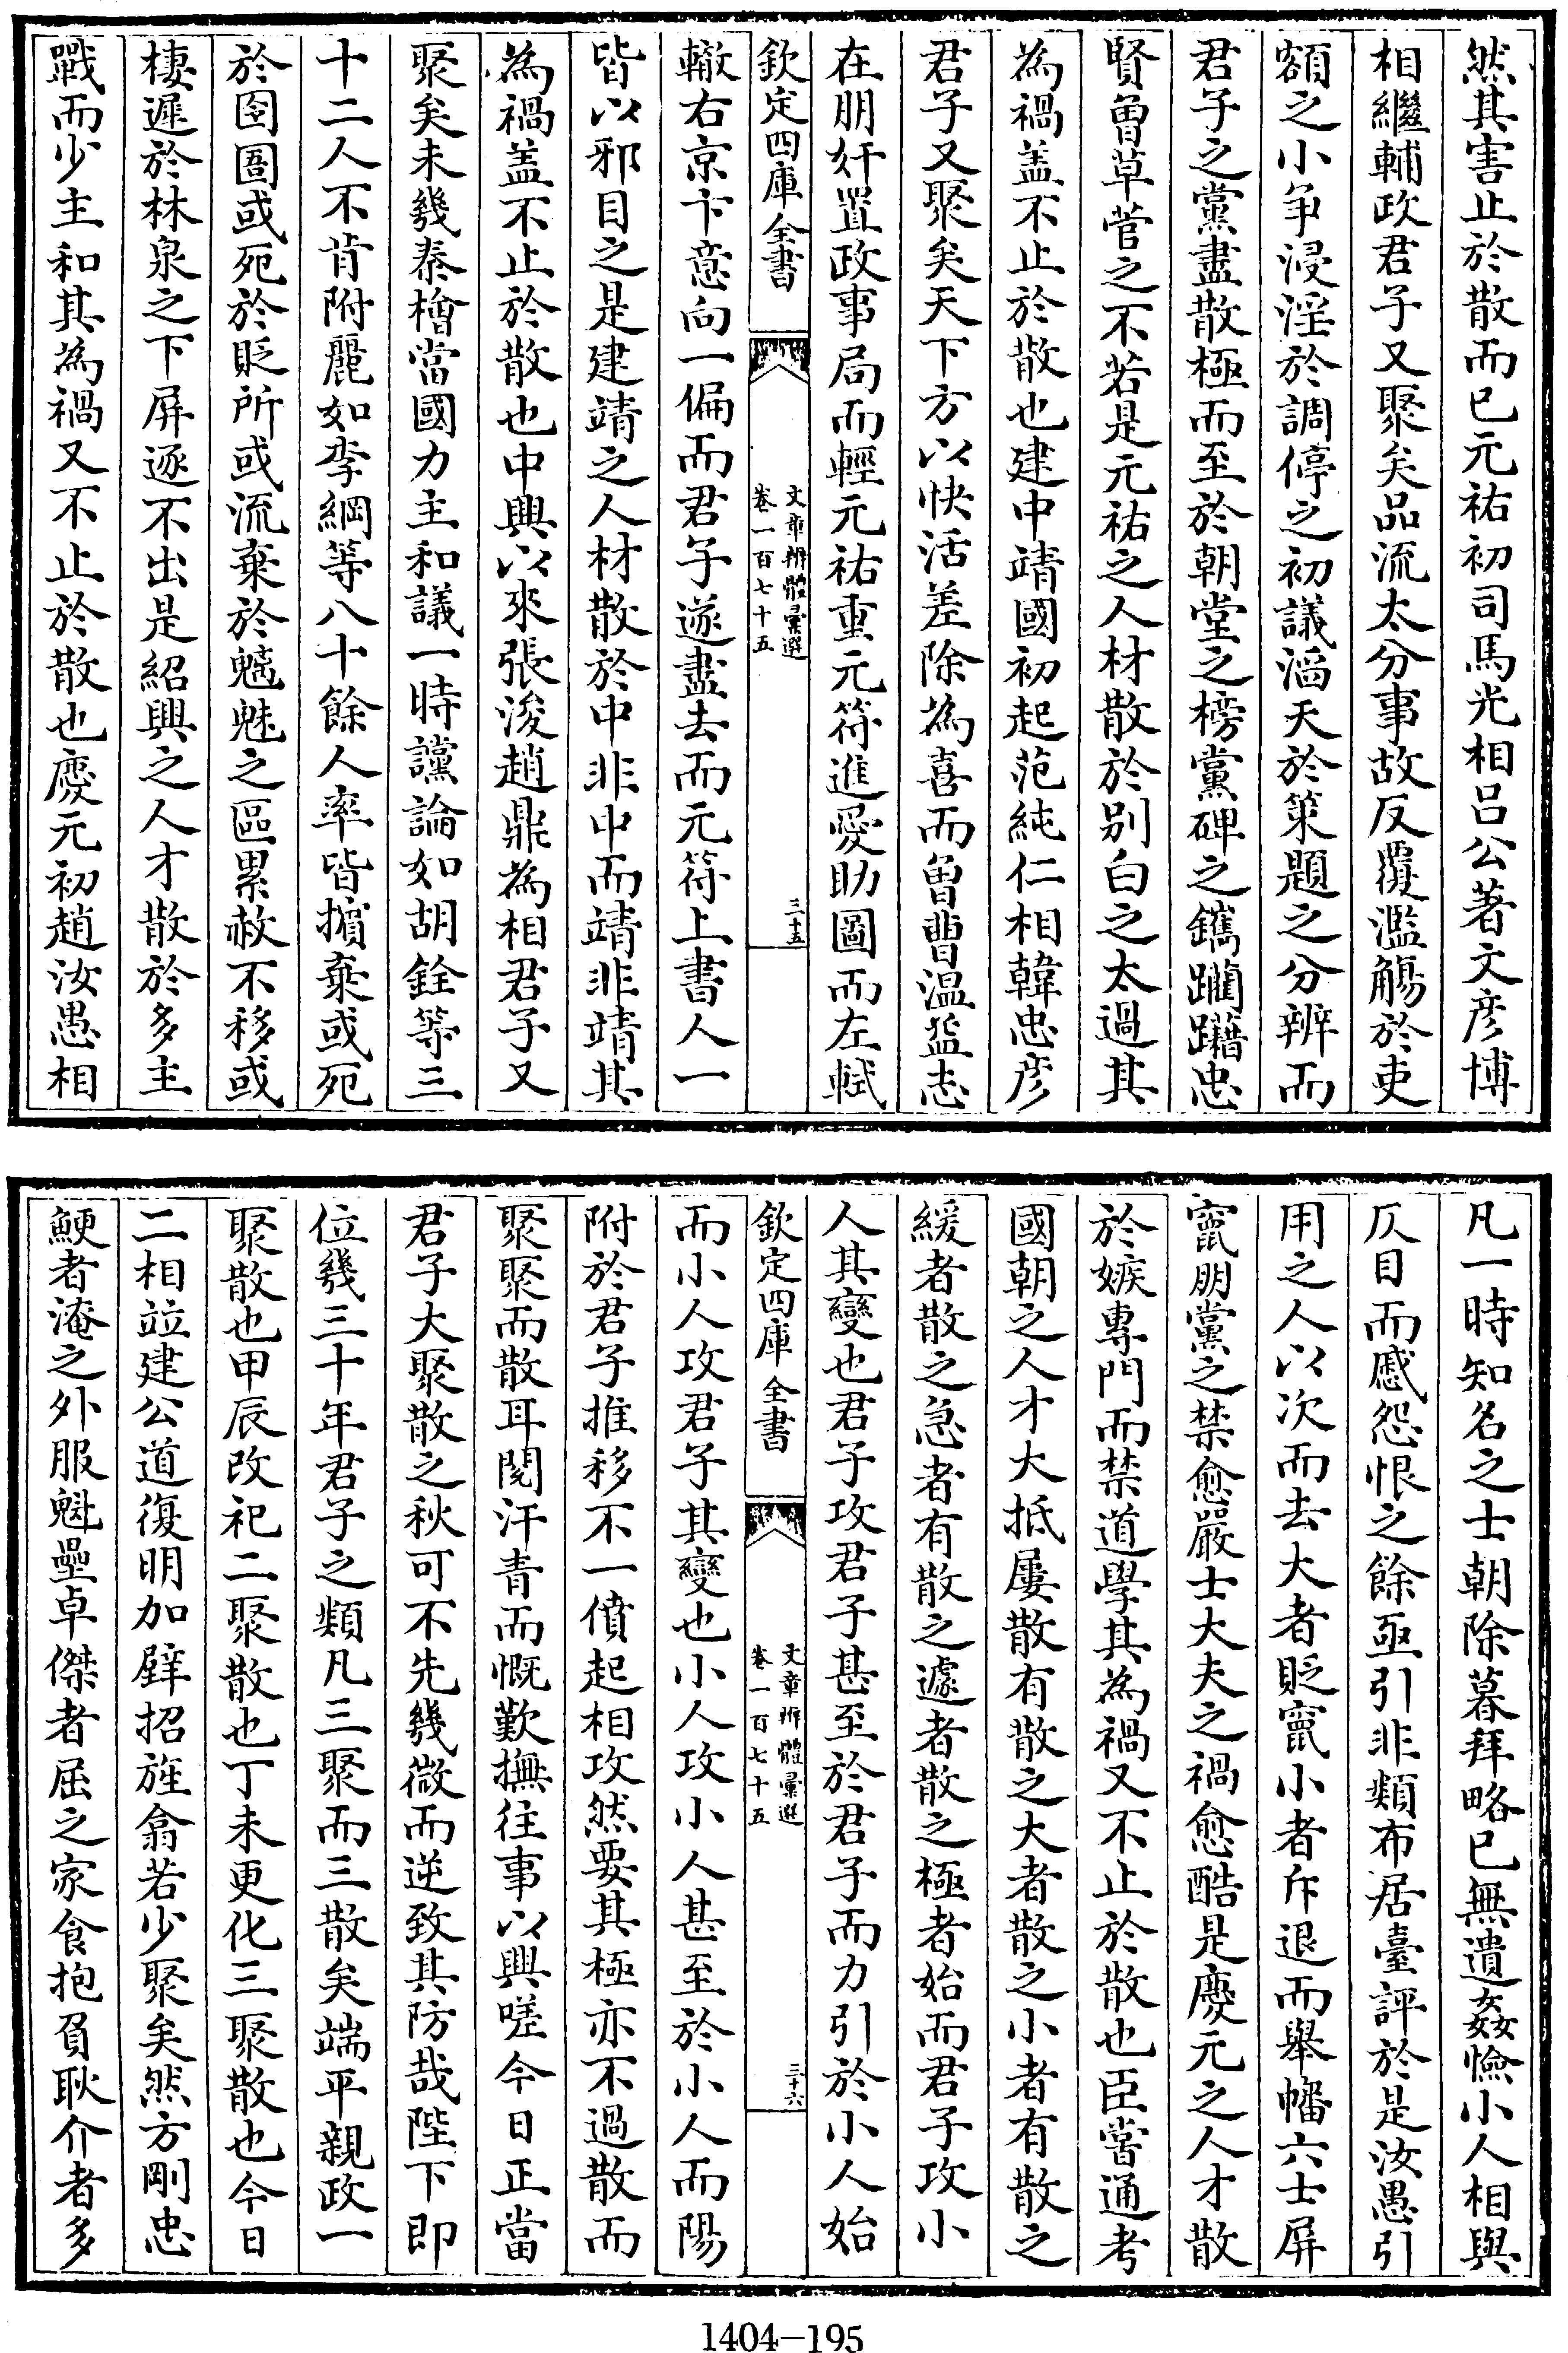 然其害止於散而已元祐初司馬光相吕公著文彦博
相繼輔政君子又聚矣品流太分事故反覆濫觴於吏
額之小争浸淫於調停之初議滔天於策題之分辨而
君子之黨盡散極而至於朝堂之榜黨碑之鐫躪藉忠
賢曾草菅之不若是元祐之人材散於别白之太過其
為禍盖不止於散也建中靖國初起范純仁相韓忠彦
君子又聚矣天下方以快活差除為喜而曾曹温益志
在朋奸置政事局而輕元祐重元符進愛助圖而左軾
欽定四庫全書
文章辨體彙選
卷一百七十五
三十五
轍右京卞意向一偏而君子遂盡去而元符上書人一
皆以邪目之是建靖之人材散於中非中而靖非靖其
為禍盖不止於散也中興以來張浚趙鼎為相君子又
聚矣未幾秦檜當國力主和議一時讜論如胡銓等三
十二人不肯附麗如李綱等八十餘人率皆擯棄或死
於囹圄或死於貶所或流棄於魑魅之區累赦不移或
棲遲於林泉之下屏逐不出是紹興之人才散於多主
戰而少主和其為禍又不止於散也慶元初趙汝愚相
凡一時知名之士朝除暮拜略已無遺姦憸小人相與
仄目而慼怨恨之餘亟引非類布居臺評於是汝愚引
用之人以次而去大者貶竄小者斥退而舉幡六士屏
竄朋黨之禁愈嚴士大夫之禍愈酷是慶元之人才散
於嫉專門而禁道學其為禍又不止於散也臣嘗通考
國朝之人才大抵屢散有散之大者散之小者有散之
緩者散之急者有散之遽者散之極者始而君子攻小
人其變也君子攻君子甚至於君子而力引於小人始
欽定四庫全書
文章辨體彙選
卷一百七十五
三十六
而小人攻君子其變也小人攻小人甚至於小人而陽
附於君子推移不一僨起相攻然要其極亦不過散而
聚聚而散耳閱汗青而慨歎撫往事以興嗟今日正當
君子大聚散之秋可不先幾微而逆致其防哉陛下即
位幾三十年君子之類凡三聚而三散矣端平親政一
聚散也甲辰改祀二聚散也丁未更化三聚散也今日
二相竝建公道復明加璧招旌翕若少聚矣然方剛忠
鯁者淹之外服魁壘卓傑者屈之家食抱負耿介者多
1404-195